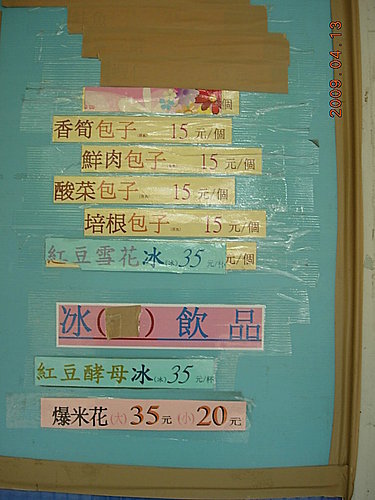 2009.04.13
個
香筍包子 15元/個
鮮肉包子 15元/個
酸菜包子 15元/個
培根包子 15元/個
紅豆雪花冰(冰)35元/杯
元/個
冰( )飲品
紅豆酵母冰(冰)35元/杯
爆米花(大)35元(小)20元